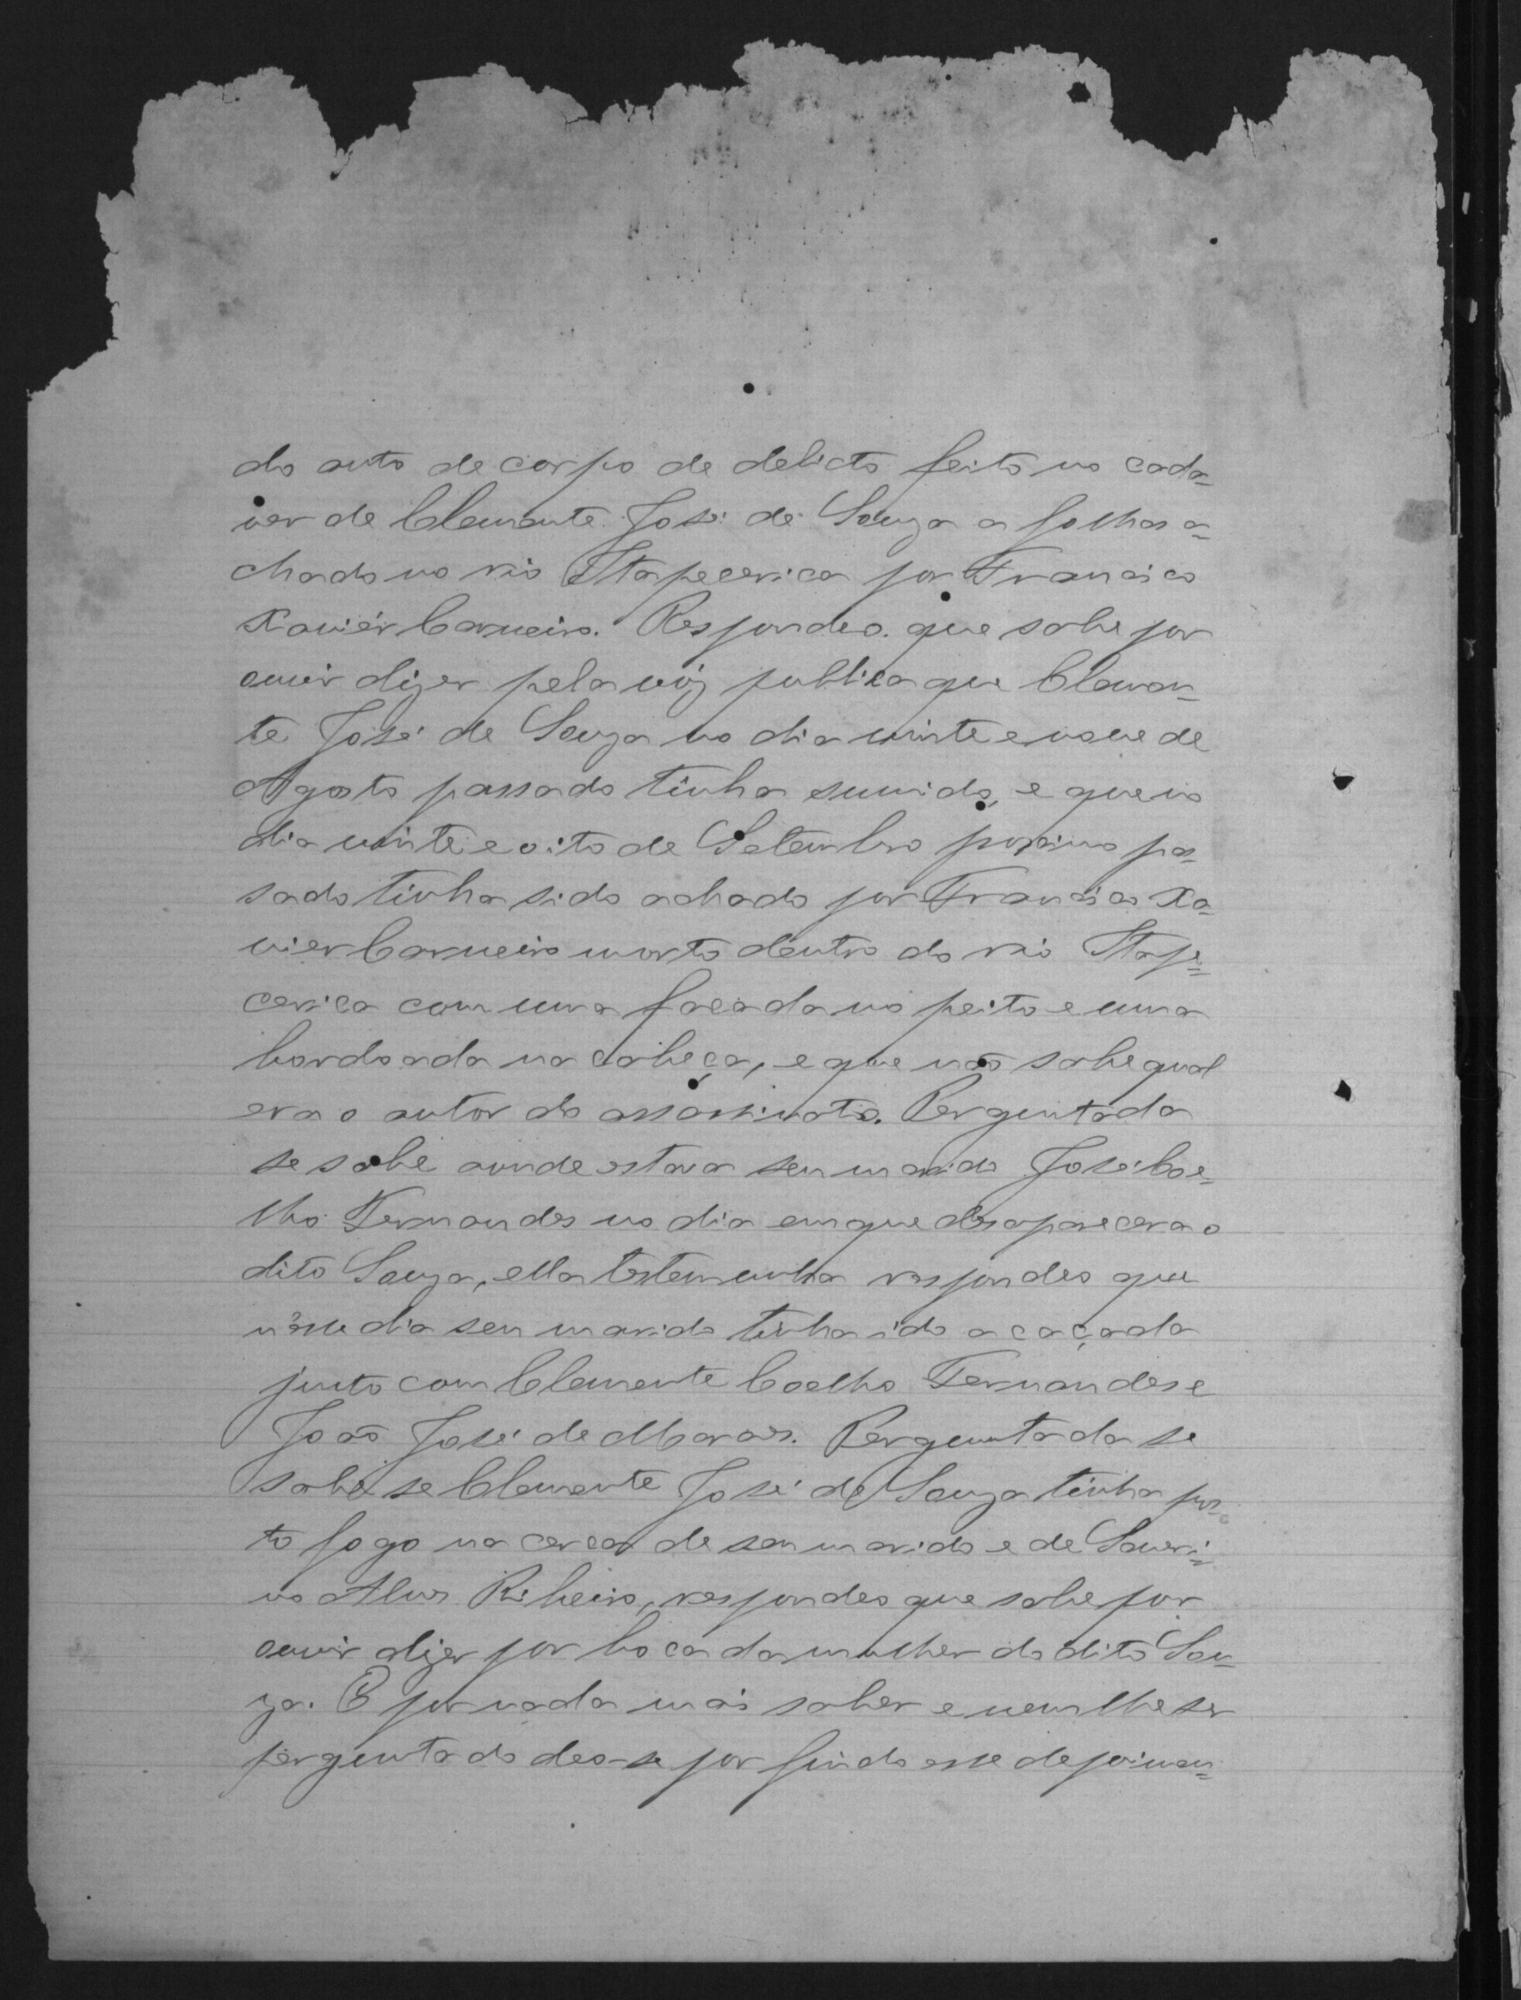 do auto de corpo de delicto feito no cada=
ver de Clemente José de Souza a folhas a=
chado no rio Itapecerica por Francisco
Xavier Carneiro. Respondeo que sabe por
ouvir dizer pela vóz publica que Clemen=
te José de Souza no dia vinte e nove de
Agosto passado tinha sumido, e que no
dia vinte e oito de Setembro proximo pas=
sado tinha sido achado por Francisco Xa=
vier Carneiro morto dentro do rio Itape=
cerica com uma facada no peito e uma
bordoada na cabeça, e que não sabe qual
era o autor do assassinato. Perguntada
se sabe aonde estava seu marido José Coe=
lho Fernandes no dia em que desaparecera o
dito Souza, ella testemunha respondeo que
nesse dia seu marido tinha ido a caçada
junto com Clemente Coelho Fernandes e
João José de Moraes. Perguntada se
sabe se Clemente José de Souza tinha pos=
to fogo na cerca de seu marido e de Saveri=
no Alves Ribeiro, respondeo que sabe por
ouvir dizer por boca da mulher do dito Sou=
za. E por nada mais saber e nem lhe ser
perguntado deo-se por findo esse depoimen=